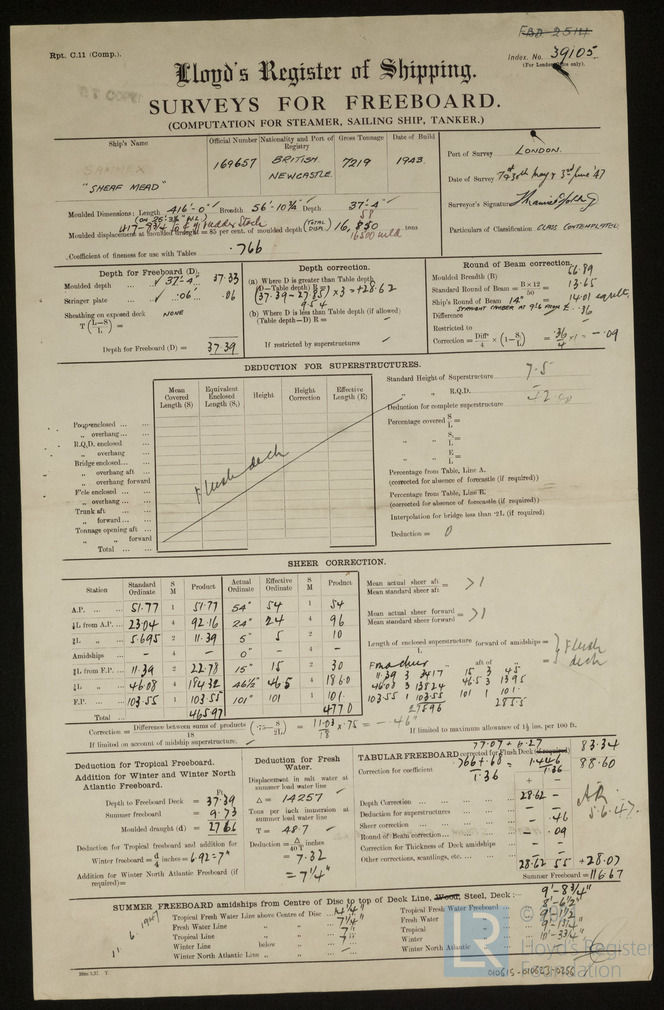 FBD 2514
Rpt. C.11 (Comp.).
Index. No. 39105
(For London Office only).
Lloyd's Register of Shipping.
SURVEYS FOR FREEBOARD.
(COMPUTATION FOR STEAMER, SAILING SHIP, TANKER.)
Ship's Name
Official Number
Nationality and Port of Registry
Gross Tonnage
Date of Build
SAMMEX
"SHEAF MEAD"
169657
BRITISH
NEWCASTLE.
7219
1943.
Port of Survey LONDON.
Date of Survey
Surveyor's Signature
Particulars of Classification CLASS CONTEMPLATED
Moulded Dimensions: Length 416'-0" Breadth 56'-10¾" Depth 37'-4"
Moulded displacement at moulded draught = 85 per cent. of moulded depth (TOTAL DISPL) 16,850 tons
16500 mld
Coefficient of fineness for use with Tables .766
Depth for Freeboard (D).
Moulded depth ... 37'-4" 37.33
Stringer plate ... .06 .06
Sheathing on exposed deck NONE
T (L-S/L) =
Depth for Freeboard (D) = 37.39
Depth correction.
(a) Where D is greater than Table depth
(D—Table depth) R =
(37.39-27.85) x 3 = +28.62
9.54
(b) Where D is less than Table depth (if allowed)
(Table depth—D) R =
If restricted by superstructures
Round of Beam correction.
Moulded Breadth (B) 56.89
Standard Round of Beam = B×12/50 = 13.65
Ship's Round of Beam 14" = 14.01
Difference .36
Restricted to
Correction = Diff/4 × (1-S/L) = .36/4 x 1 = -.09
DEDUCTION FOR SUPERSTRUCTURES.
Mean Covered Length (S)
Equivalent Enclosed Length (S₁)
Height
Height Correction
Effective Length (E)
Poop enclosed ... ...
„ overhang ... ...
R.Q.D. enclosed ...
„ overhang ...
Bridge enclosed... ...
„ overhang aft ...
„ overhang forward
F'cle enclosed ... ...
„ overhang ...
Trunk aft ... ...
„ forward ... ...
Tonnage opening aft ...
„ „ forward
Total ... ...
Flush deck
Standard Height of Superstructure 7.5
„ „ R.Q.D.
Deduction for complete superstructure
Percentage covered S/L =
„ „ S₁/L =
„ „ E/L =
Percentage from Table, Line A.
(corrected for absence of forecastle (if required))
Percentage from Table, Line B.
(corrected for absence of forecastle (if required))
Interpolation for bridge less than ·2L (if required)
Deduction = 0
SHEER CORRECTION.
Station
Standard Ordinate
S M
Product
Actual Ordinate
Effective Ordinate
S M
Product
A.P. ... 51.77 1 51.77 54" 54 1 54
⅙L from A.P. ... 23.04 4 92.16 24" 24 4 96
⅓L „ 5.695 2 11.39 5" 5 2 10
Amidships ... - 4 - 0" - 4 -
⅓L from F.P. ... 11.39 2 22.78 15" 15 2 30
⅙L „ 46.08 4 184.32 46½" 46.5 4 186.0
F.P. ... 103.55 1 103.55 101" 101 1 101.
Total ... 465.97 477.0
Mean actual sheer aft / Mean standard sheer aft = >1
Mean actual sheer forward / Mean standard sheer forward = >1
Length of enclosed superstructure forward of amidships =
„ „ aft of „ =
Flush deck
11.39 3 34.17 15 3 45
46.08 3 138.24 46.5 3 139.5
103.55 1 103.55 101 1 101.
275.96 285.5
Correction = Difference between sums of products / 18 (.75 - S/2L) = 11.03/18 x .75 = -.46"
If limited on account of midship superstructure.
If limited to maximum allowance of 1½ ins. per 100 ft.
Deduction for Tropical Freeboard.
Addition for Winter and Winter North Atlantic Freeboard.
Ft.
Depth to Freeboard Deck = 37.39
Summer freeboard = 9.73
Moulded draught (d) = 27.66
Deduction for Tropical freeboard and addition for
Winter freeboard = d/4 inches = 6.92 = 7"
Addition for Winter North Atlantic Freeboard (if required) =
Deduction for Fresh Water.
Displacement in salt water at summer load water line
Δ = 14257
Tons per inch immersion at summer load water line
T = 48.7
Deduction = Δ/40T inches
= 7.32
= 7¼"
77.07 + 6.27 83.34
TABULAR FREEBOARD corrected for Flush Deck (if required)
Correction for coefficient .766+.68/1.36 = 1.446/1.36 88.60
+ -
Depth Correction ... 28.62 -
Deduction for superstructures ... - -
Sheer correction ... - .46
Round of Beam correction ... - .09
Correction for Thickness of Deck amidships ... - -
Other corrections, scantlings, etc. ...
28.62 .55 +28.07
Summer Freeboard = 116.67
5.6.47.
SUMMER FREEBOARD amidships from Centre of Disc to top of Deck Line, Wood, Steel, Deck :— 9'-8¾"
Tropical Fresh Water Line above Centre of Disc ... 14¼"
Fresh Water Line „ „ ... 7¼"
Tropical Line „ „ ... 7"
Winter Line below „ ... 7"
Winter North Atlantic Line „ „ ... -
Tropical Fresh Water Freeboard ... 8'-6½"
Fresh Water „ ... 9'-1½"
Tropical „ ... 9'-1¾"
Winter „ ... 10'-3¾"
Winter North Atlantic „
LR
© 2021
Lloyd's Register
Foundation
010615-010623-0256